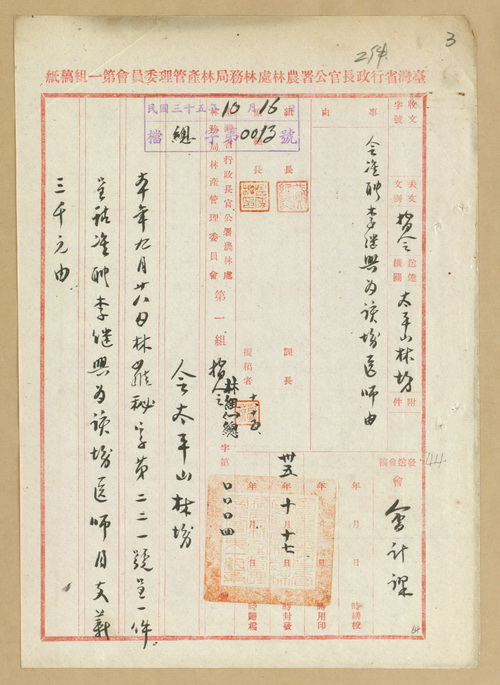 3
臺灣省行政長官公署農林處林務局林產管理委員會第一組稿紙
收文
字號
事由
令准聘李繼興為該場醫師由
去文
文別 指令
送達機關 太平山林場
附件
會
會計課
組長
課長
擬稿者
民國三十五年10月16日
檔 總 字第0013號
臺灣省行政長官公署農林處
林務局林產管理委員會
第一組
指令
字第
四
卅五年十月十七日
年 月 日
時繕校
時用印
時封發
時歸檔
令太平山林場
本年九月廿八日林羅秘字第二二一號呈一件
呈請准聘李繼興為該場醫師月支薪
三千元由